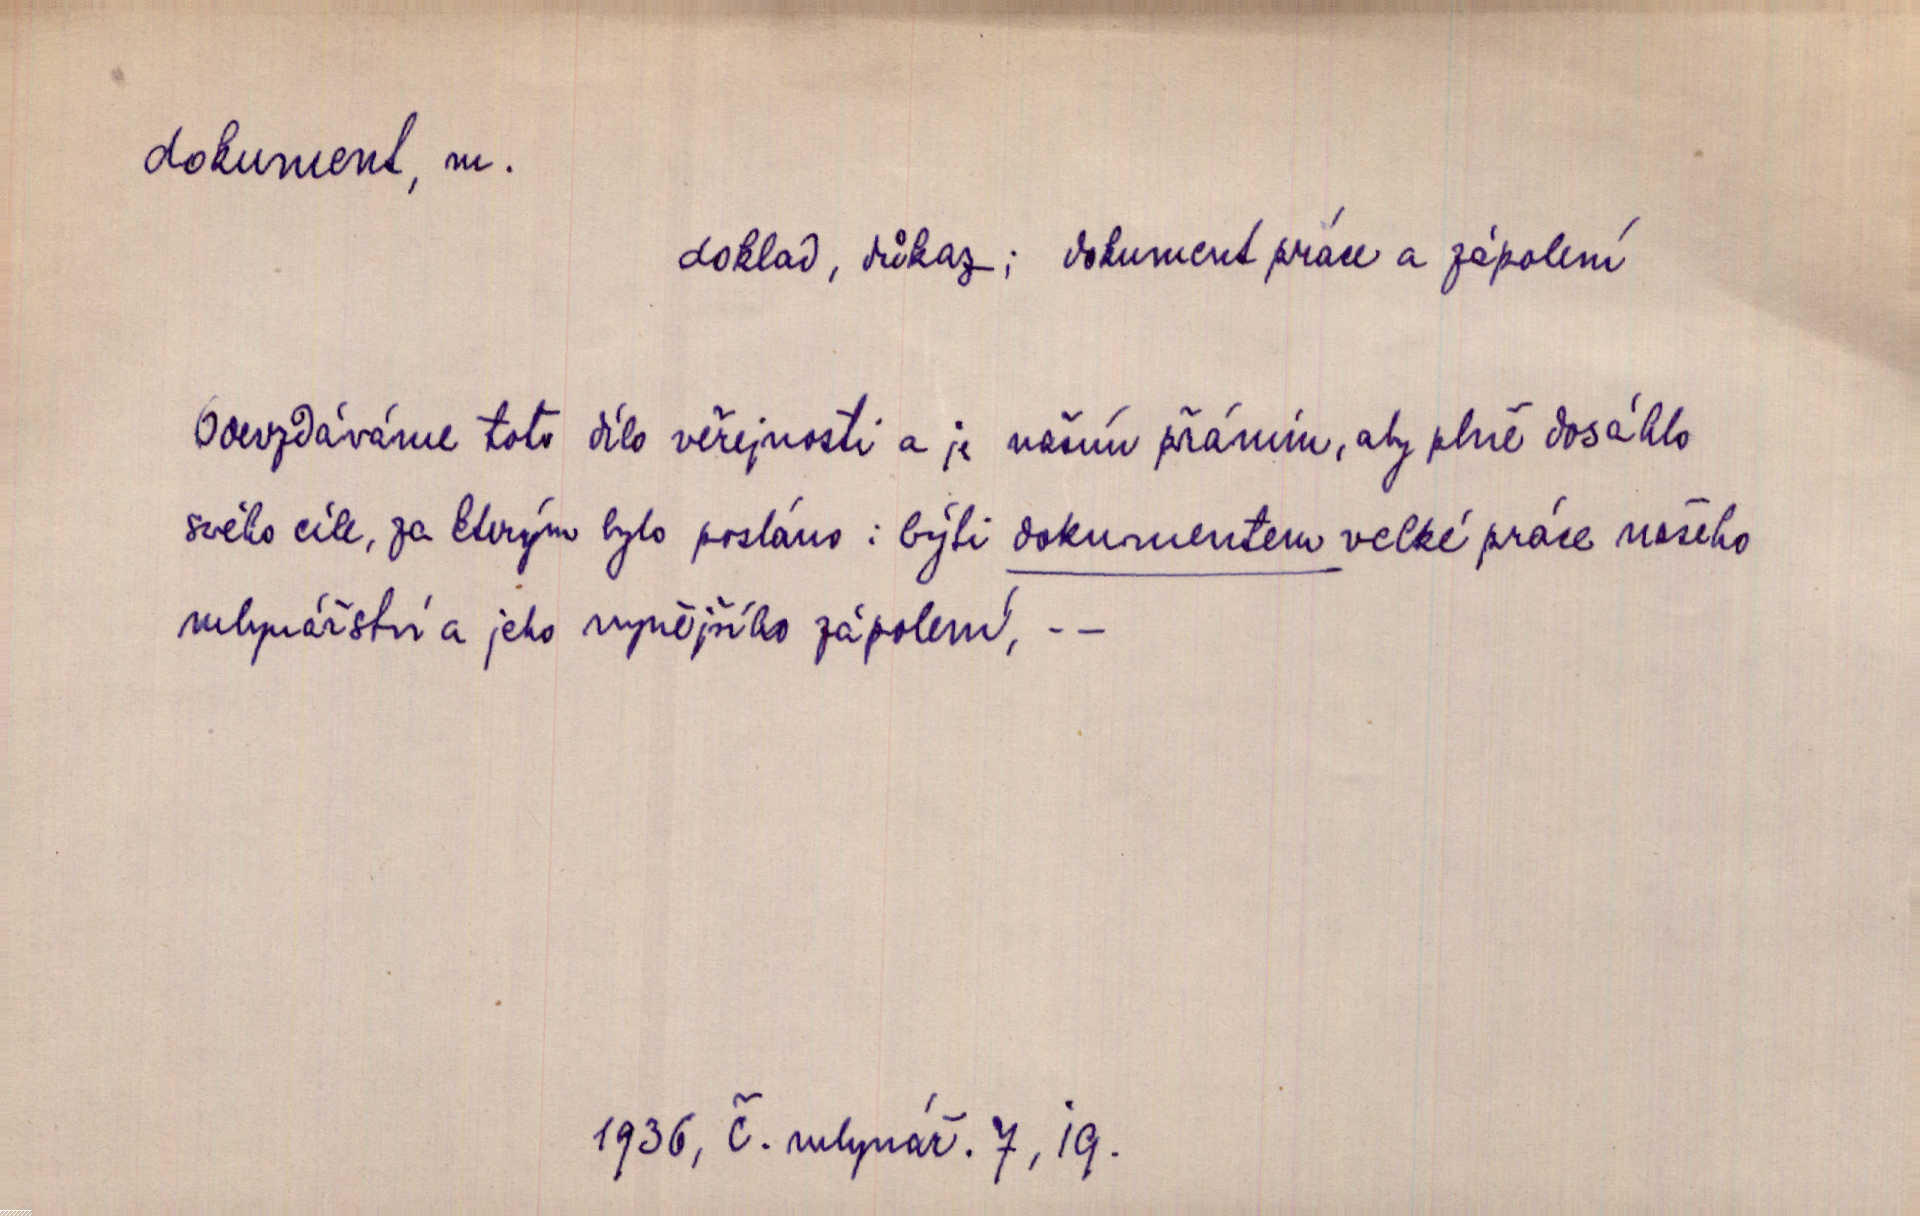 dokument, m.
doklad, důkaz; dokument práce a zápolení
Odevzdáváme toto dílo veřejnosti a je naším přáním, aby plně dosáhlo
svého cíle, za kterým bylo posláno: býti dokumentem velké práce našeho
mlynářství a jeho nynějšího zápolení, --
1936, Č. mlynář. 7, 19.